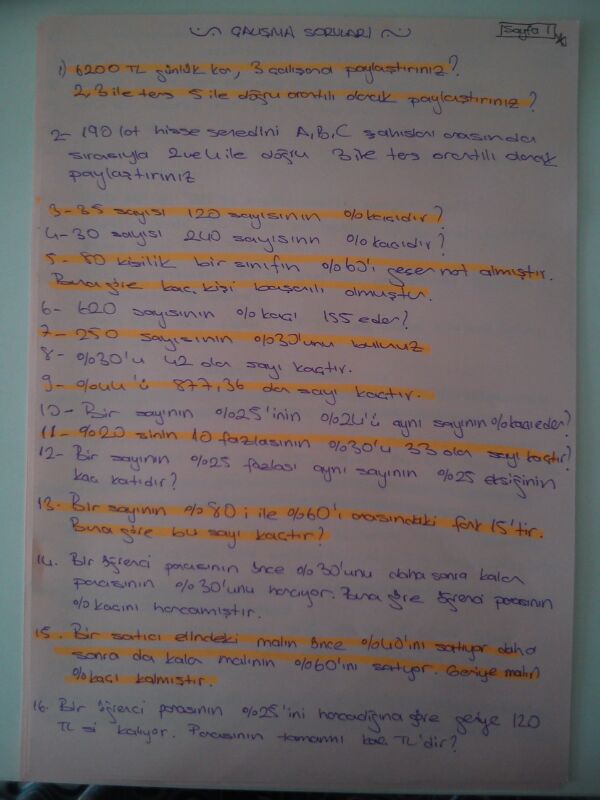 ÇALIŞMA SORULARI
Sayfa 1
1) 6200 TL günlük kar, 3 çalışana paylaştırınız?
2,3 ile ters 5 ile doğru orantılı olarak paylaştırınız?
2- 190 lot hisse senedini A,B,C şahısları arasında
sırasıyla 2 ve 4 ile doğru 3 ile ters orantılı olarak
paylaştırınız
3-35 sayısı 120 sayısının %kaçıdır?
4-30 sayısı 240 sayısının %kaçıdır?
5- 80 kişilik bir sınıfın %60'ı geçer not almıştır.
Buna göre kaç kişi başarılı olmuştur.
6- 620 sayısının %kaçı 155 eder?
7- 250 sayısının %30'unu bulunuz
8- %30'u 42 olan sayı kaçtır.
9- %44'ü 877,36 olan sayı kaçtır.
10- Bir sayının %25'inin %24'ü aynı sayının %kaçı eder?
11- %20 sinin 10 fazlasının %30'u 33 olan sayı kaçtır?
12- Bir sayının %25 fazlası aynı sayının %25 eksiğinin
kaç katıdır?
13. Bir sayının %80 i ile %60'ı arasındaki fark 15'tir.
Buna göre bu sayı kaçtır?
14. Bir öğrenci parasının önce %30'unu daha sonra kalan
parasının %30'unu harcıyor. Buna göre öğrenci parasının
%kaçını harcamıştır.
15. Bir satıcı elindeki malın önce %40'ını satıyor daha
sonra da kalan malının %60'ını satıyor. Geriye malın
%kaçı kalmıştır.
16. Bir öğrenci parasının %25'ini harcadığına göre geriye 120
TL si kalıyor. Parasının tamamı kaç TL'dir?